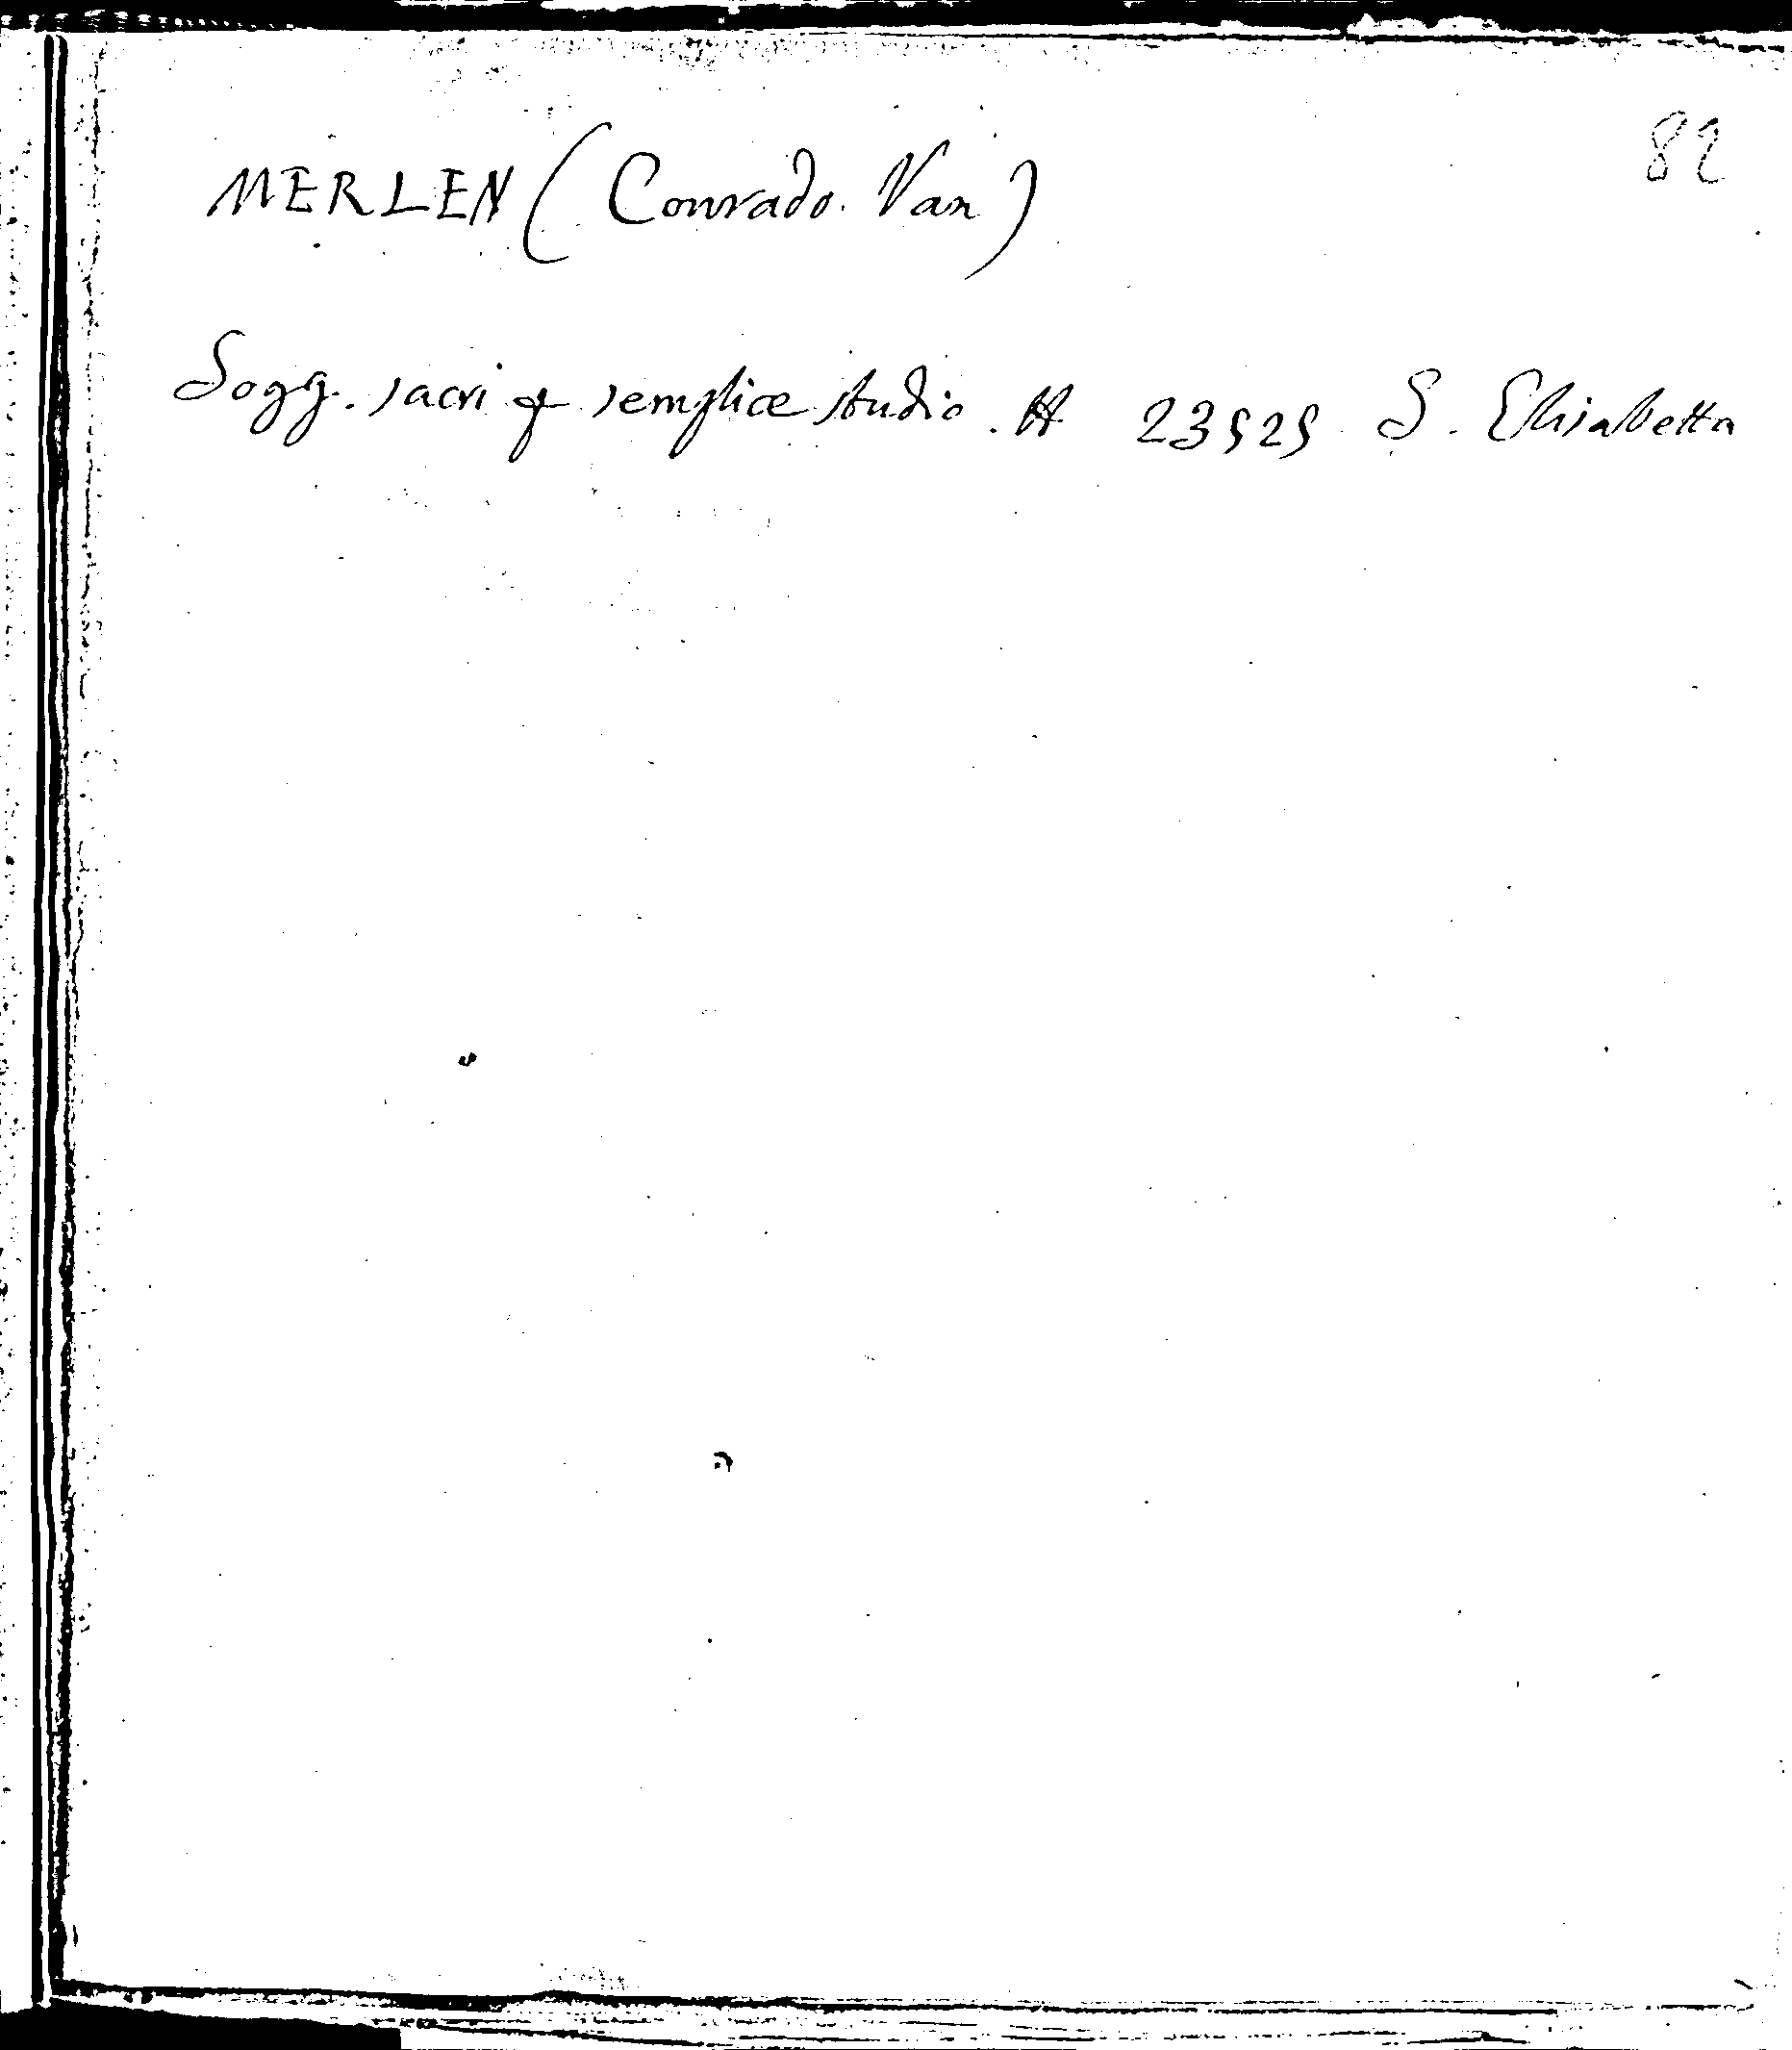 82
MERLEN (Conrado. Van)
Sogg. sacri & semplice studio. H 23525 S. Elisabetta